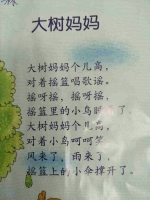 大树妈妈
大树妈妈个儿高，
对着摇篮唱歌谣。
摇呀摇，摇呀摇，
摇篮里的小鸟 了
大树妈妈个儿高，
对着小鸟呵呵笑
风来了，雨来了，
摇篮上的小伞撑开了。